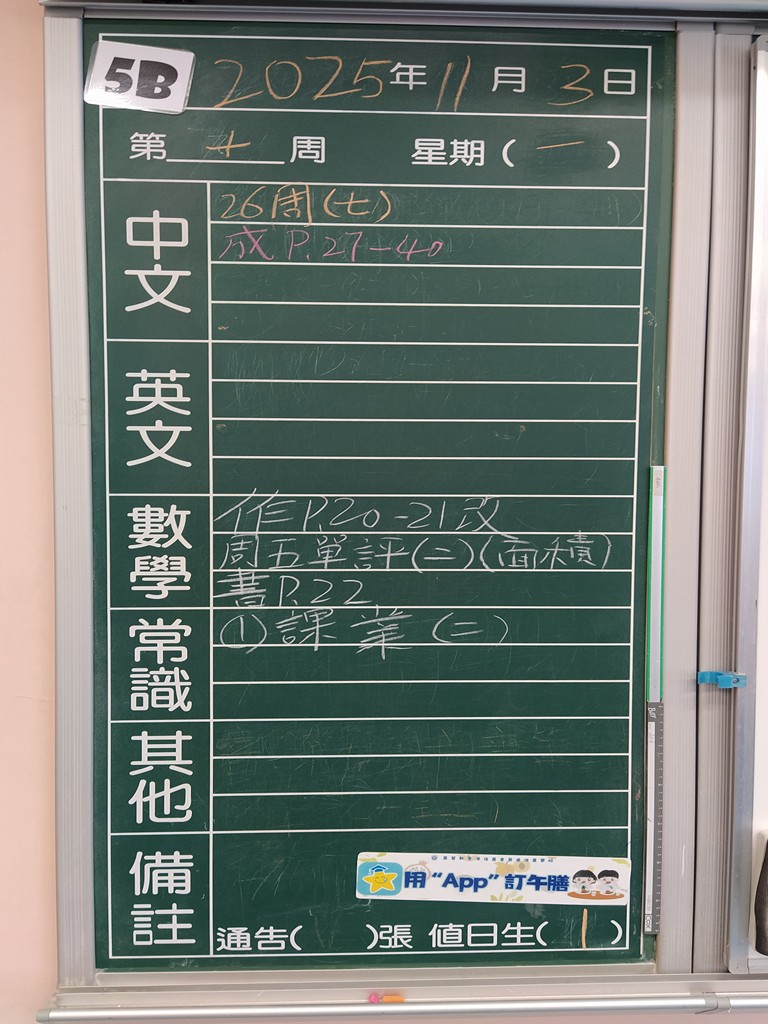 5B
2025年11月3日
第十周 星期(一)
中文
26周(七)
成P.27-40
英文
數學
作P.20-21改
周五單評(二)(面積)
書P.22
常識
①課業(二)
其他
備註
用“App”訂午膳
通告( )張 值日生(1)